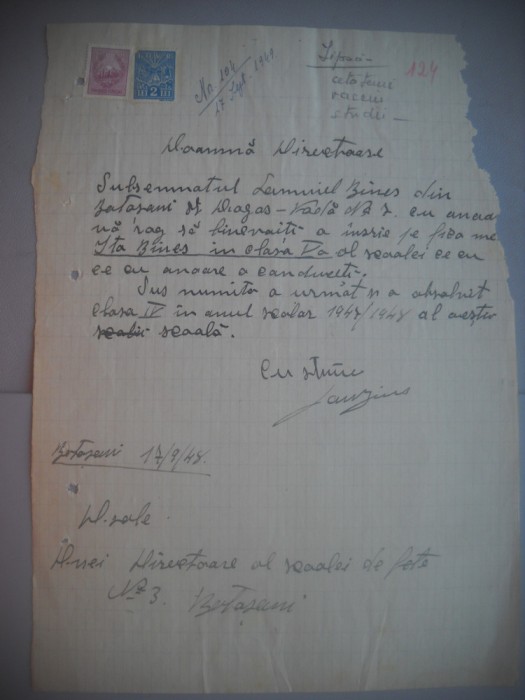 No. 204
17 Sept. 1948
Lipsesc
124
vaccin
studii —
Doamnă Directoare
Subsemnatul Samuiel Bines din
Botoșani st Dragoș-Vodă No 7. cu onoare
vă rog să binevoiți a înscrie pe fiica me
Ita Bines în clasa V a al școalei ce cu
ce cu onoare o conduceti.
Sus numita a urmat și a absolvit
clasa IV în anul școlar 1947/1948 al acestei
școală.
Cu stimă
Botoșani 17/9/48.
D.sale
Dnei Directoare al școalei de fete
No 3. Botoșani
2